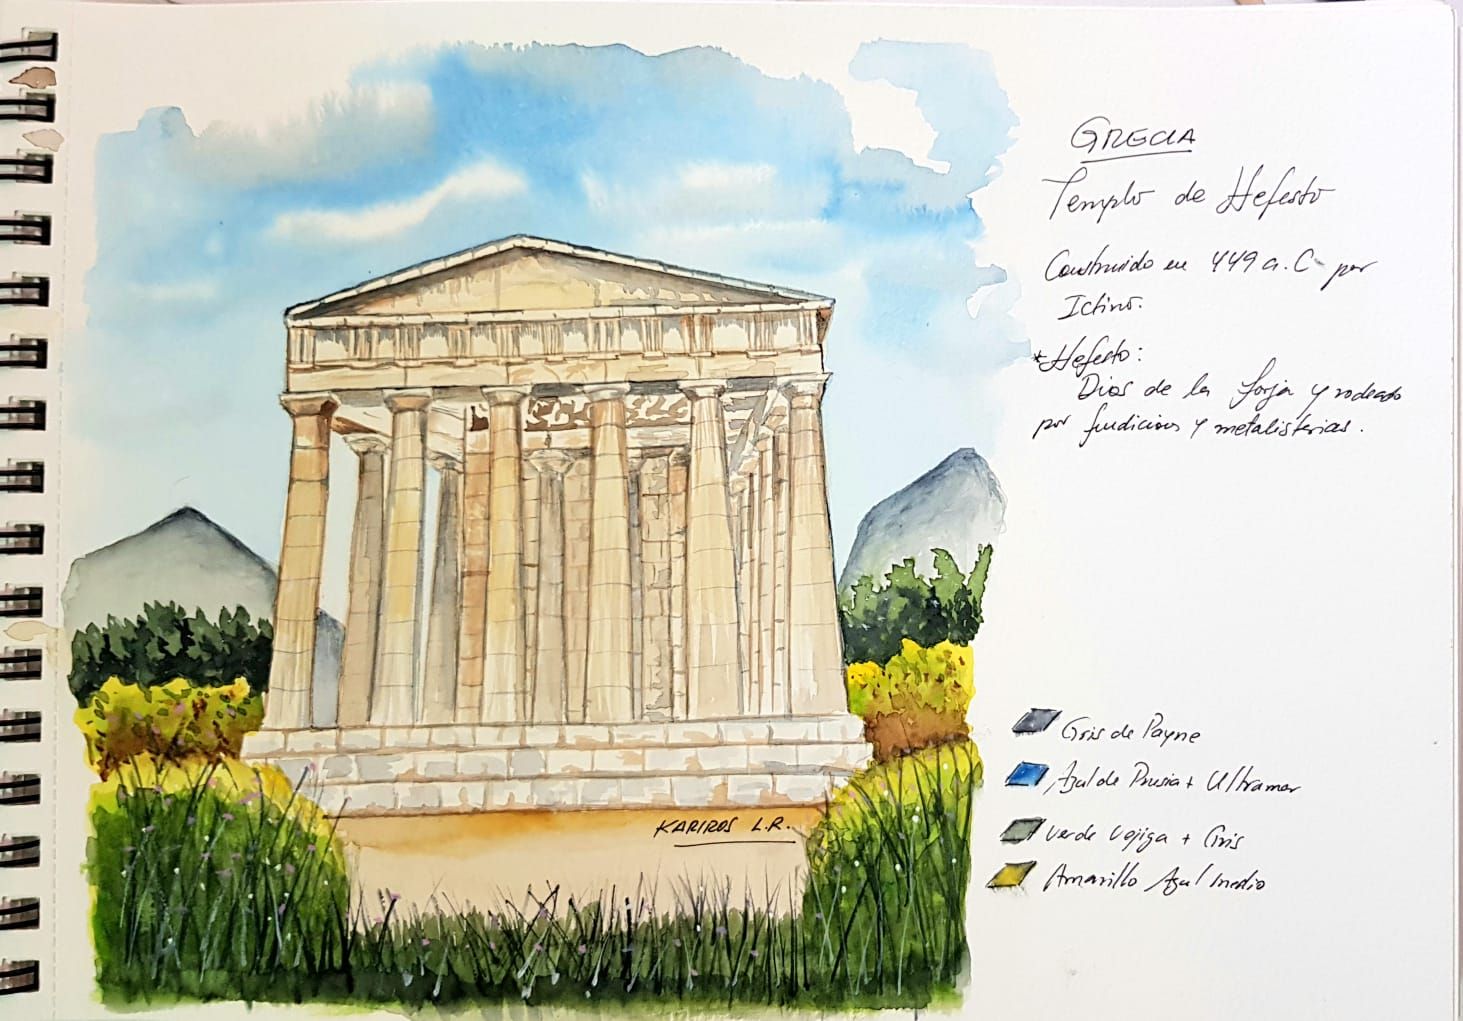 GRECIA
Templo de Hefesto
Construido en 449 a.C por
Ictino.
*Hefesto:
Dios de la forja y rodeado
por fundicion y metalisterias.
KARIROS L.R.
Gris de Payne
Azul de Prusia + Ultramar
Verde Vejiga + Gris
Amarillo Azul medio